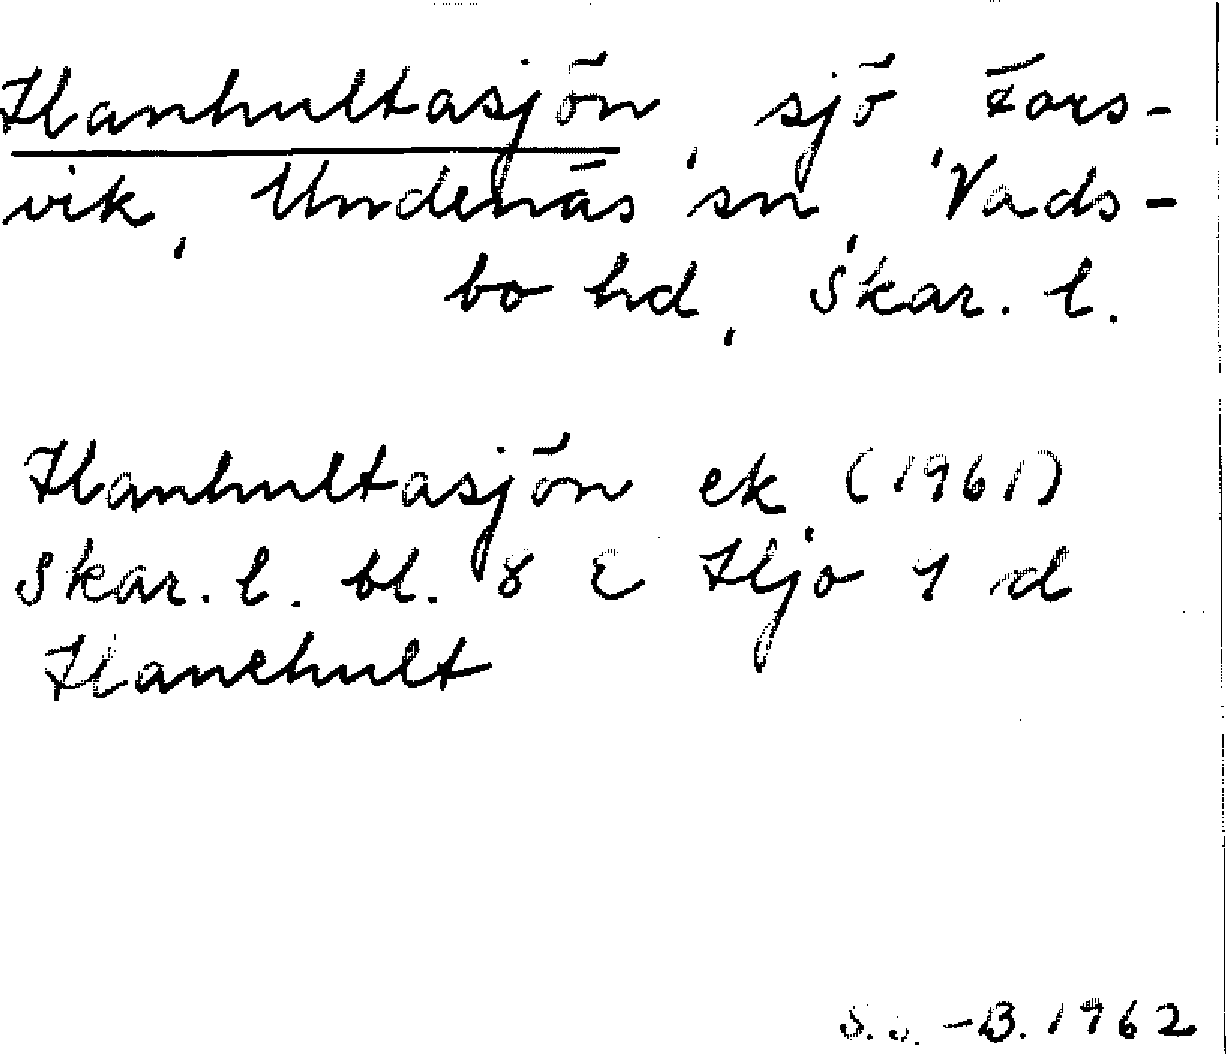 Hanhultasjön, sjö Fors-
vik, Undenäs sn, Vads-
bo hd, Skar. l.
Hanhultasjön ek. (1961)
Skar. l. bl. 8 Hjo 1 d
Hanehult
-B. 1962